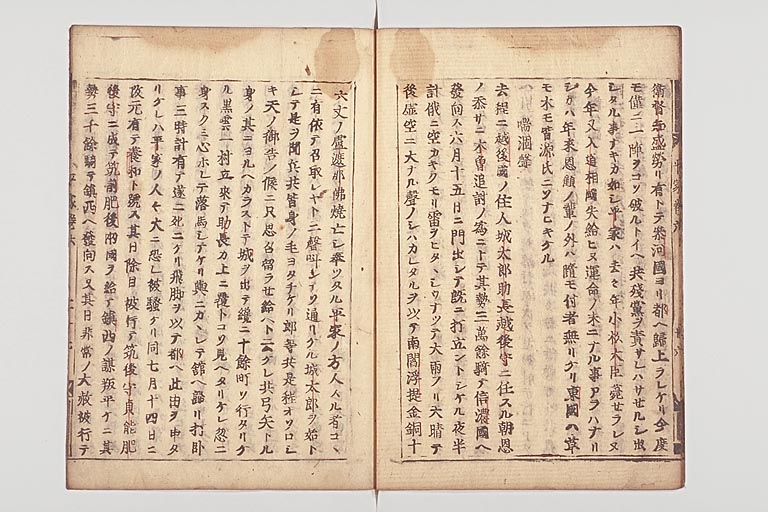 衛督知盛勞リ有トテ參河國ヨリ都ヘ歸上ラレケリ今度
モ僅ニ一陣ヲコソ破ルトイヘ共殘黨ヲ責サレハサセルシ出
シタル事ナキカ如シ平家ハ去々年小松大臣薨セラレヌ
今年又入道相國失給ヒヌ運命ノ末ニナル事アラハナリ
シカハ年來恩顧ノ輩ノ外ハ隨モ付者無リケリ東國ハ草
モ木モ皆源氏ニソナヒキケル
嗄聲
去程ニ越後國ノ住人城太郎助長越後守ニ任スル朝恩
ノ忝サニ木曾追討ノ爲ニトテ其勢三萬餘騎テ信濃國ヘ
發向ス六月十五日ニ門出シテ既ニ打立ントシケル夜半
計俄ニ空カキクモリ雷ヲヒタヽシウナツテ大雨フリ天晴テ
後虛空ニ大ナル聲ノシハカレタルヲ以テ南閻浮提金銅十
六丈ノ盧遮那佛燒亡シ奉ツタル平家ノ方人スル者コヽ
ニ有依テ召取レヤト三聲叫シテソ通リケル城太郎ヲ始ト
シテ是ヲ聞兵共皆身ノ毛ヨタチケリ郎等共是程オソロシ
キ天ノ御告ノ候ニ只思召留ラせ給ヘト云ケレ共弓矢トル
身ノ其ニヨルヘカラストテ城ヲ出テ纔ニ十餘町ソ行タリケ
ル黑雲一村立來テ助長カ上ニ覆トコソ見ヘタリケレ忽ニ
身スクミ心ホレテ落馬シテケリ輿ニカヽレテ館ヘ歸リ打臥
事三時計有テ遂ニ死ニケリ飛脚ヲ以テ都ヘ此由ヲ申タ
リケレハ平家ノ人々大ニ恐レ被騷ケリ同七月十四日ニ
改元有テ養和ト號ス其日除目被行テ筑後守貞能肥
後守ニ成テ筑前肥後兩國ヲ給テ鎭西ノ謀叛平ケニ其
勢三千餘騎テ鎭西ヘ發向ス又其日非常ノ大赦被行テ